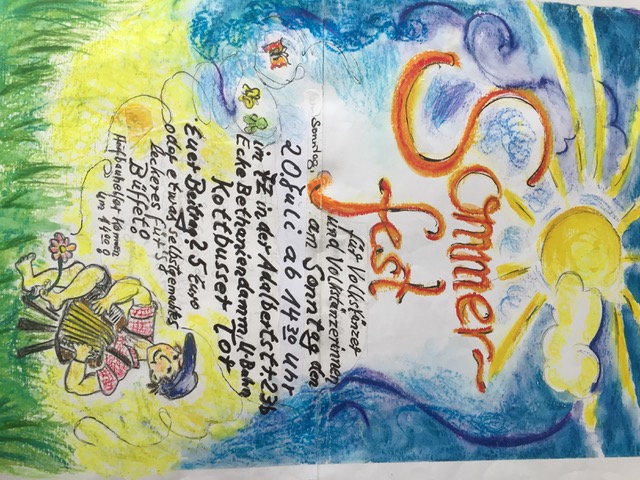 Sommer-
fest
für Volkstänzer
und Volkstänzerinnen
am Sonntag den
20. Juli ab 14 30 Uhr
im FZ in der Adalbertstr. 23b
Ecke Bethaniendamm, U-Bahn
Kottbusser Tor
Euer Beitrag: 25 Euro
oder etwas selbstgemachtes
leckeres für's
Büffet!
Aufbauhelfer kommen
um 14 00